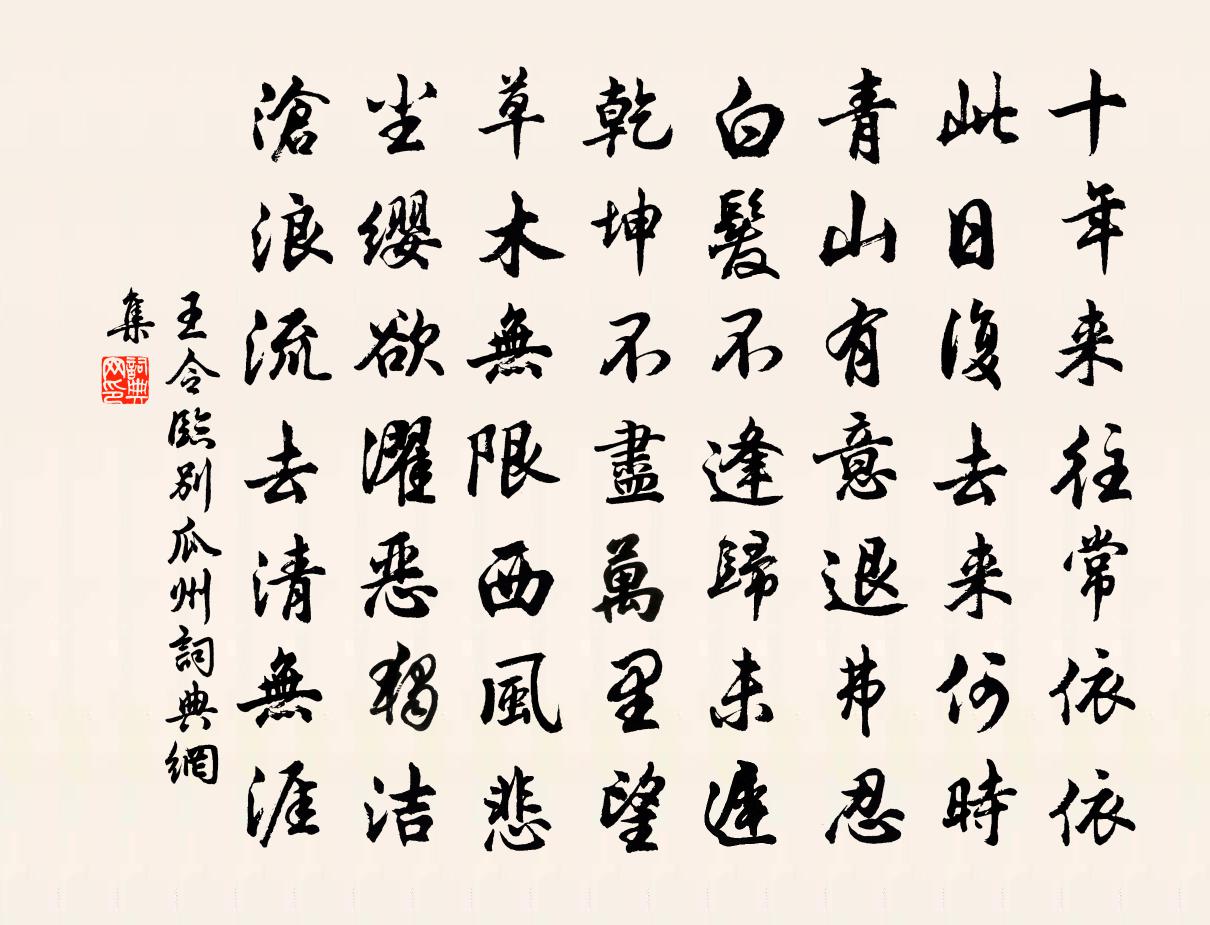 十年来往常依依
此日復去来何時
青山有意退弗忍
白髮不逢歸未遲
乾坤不盡萬里望
草木無限西風悲
坐纓欲濯惡獨洁
滄浪流去清無涯
王令臨别瓜州詞典網
集
詞典网印